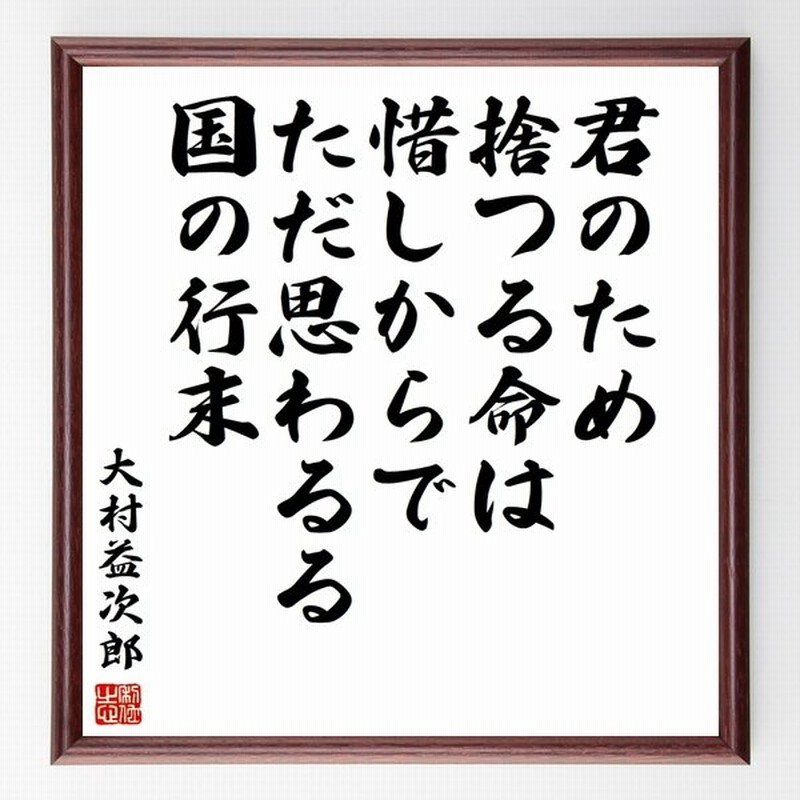 君のため
捨つる命は
惜しからで
ただ思わるる
国の行末
大村益次郎